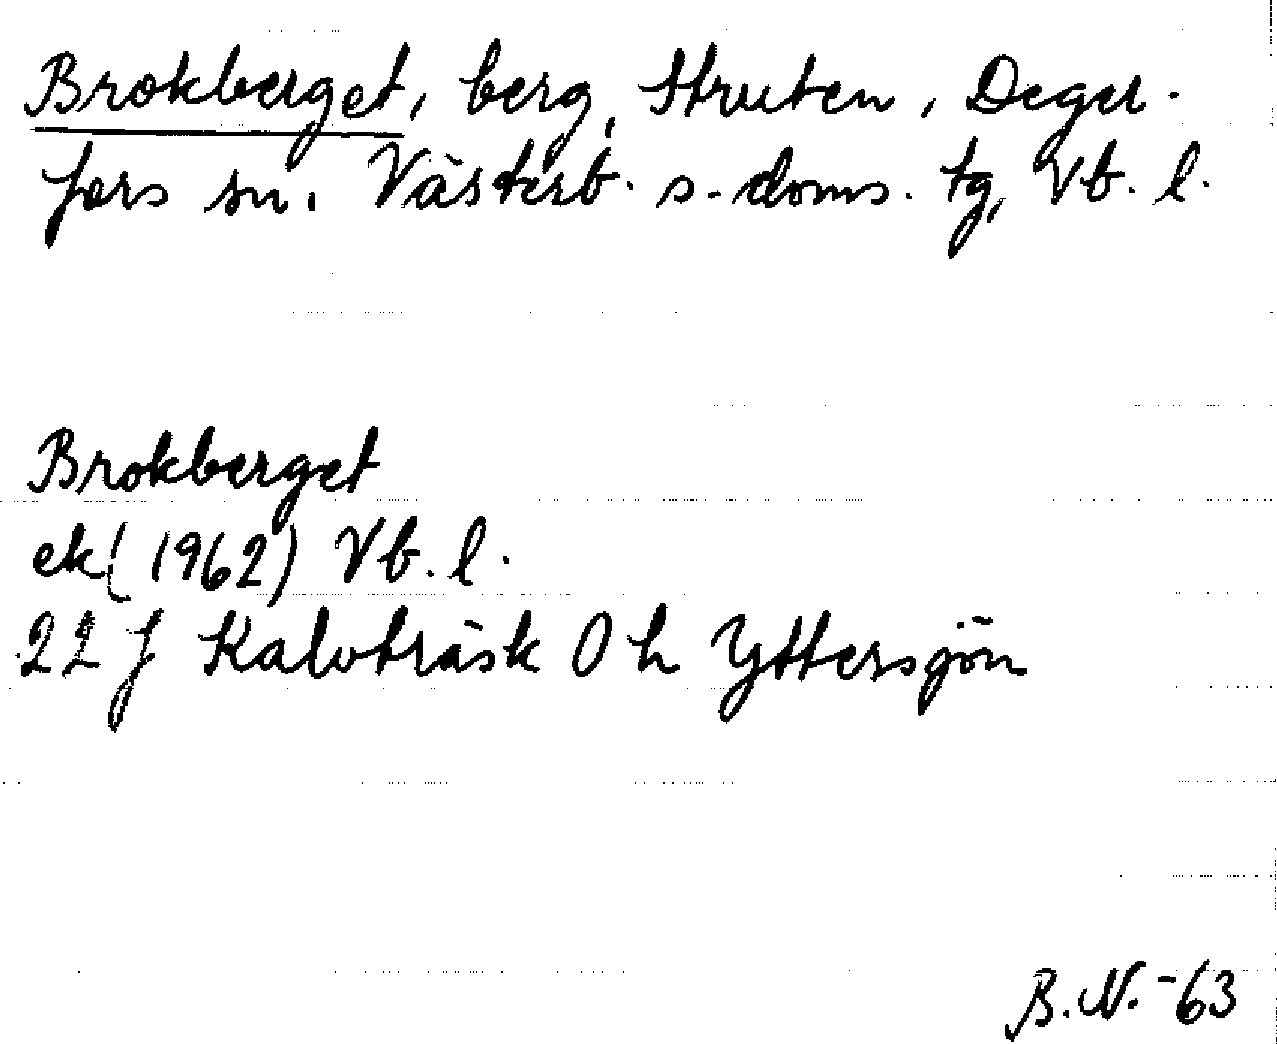 Brokberget, berg, Struten, Deger-
fors sn. Västerb. s. doms. tg, Vb. l.
Brokberget
ek (1962) Vb. l.
22 J Kalvträsk 0 h Yttersjön
B.N. -63